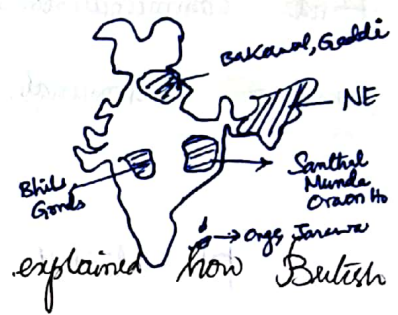 Bakarwal, Gaddi
NE
Santhal
Munda
Oraon Ho
Bhils
Gonds
Onge, Jarawa
explained how British